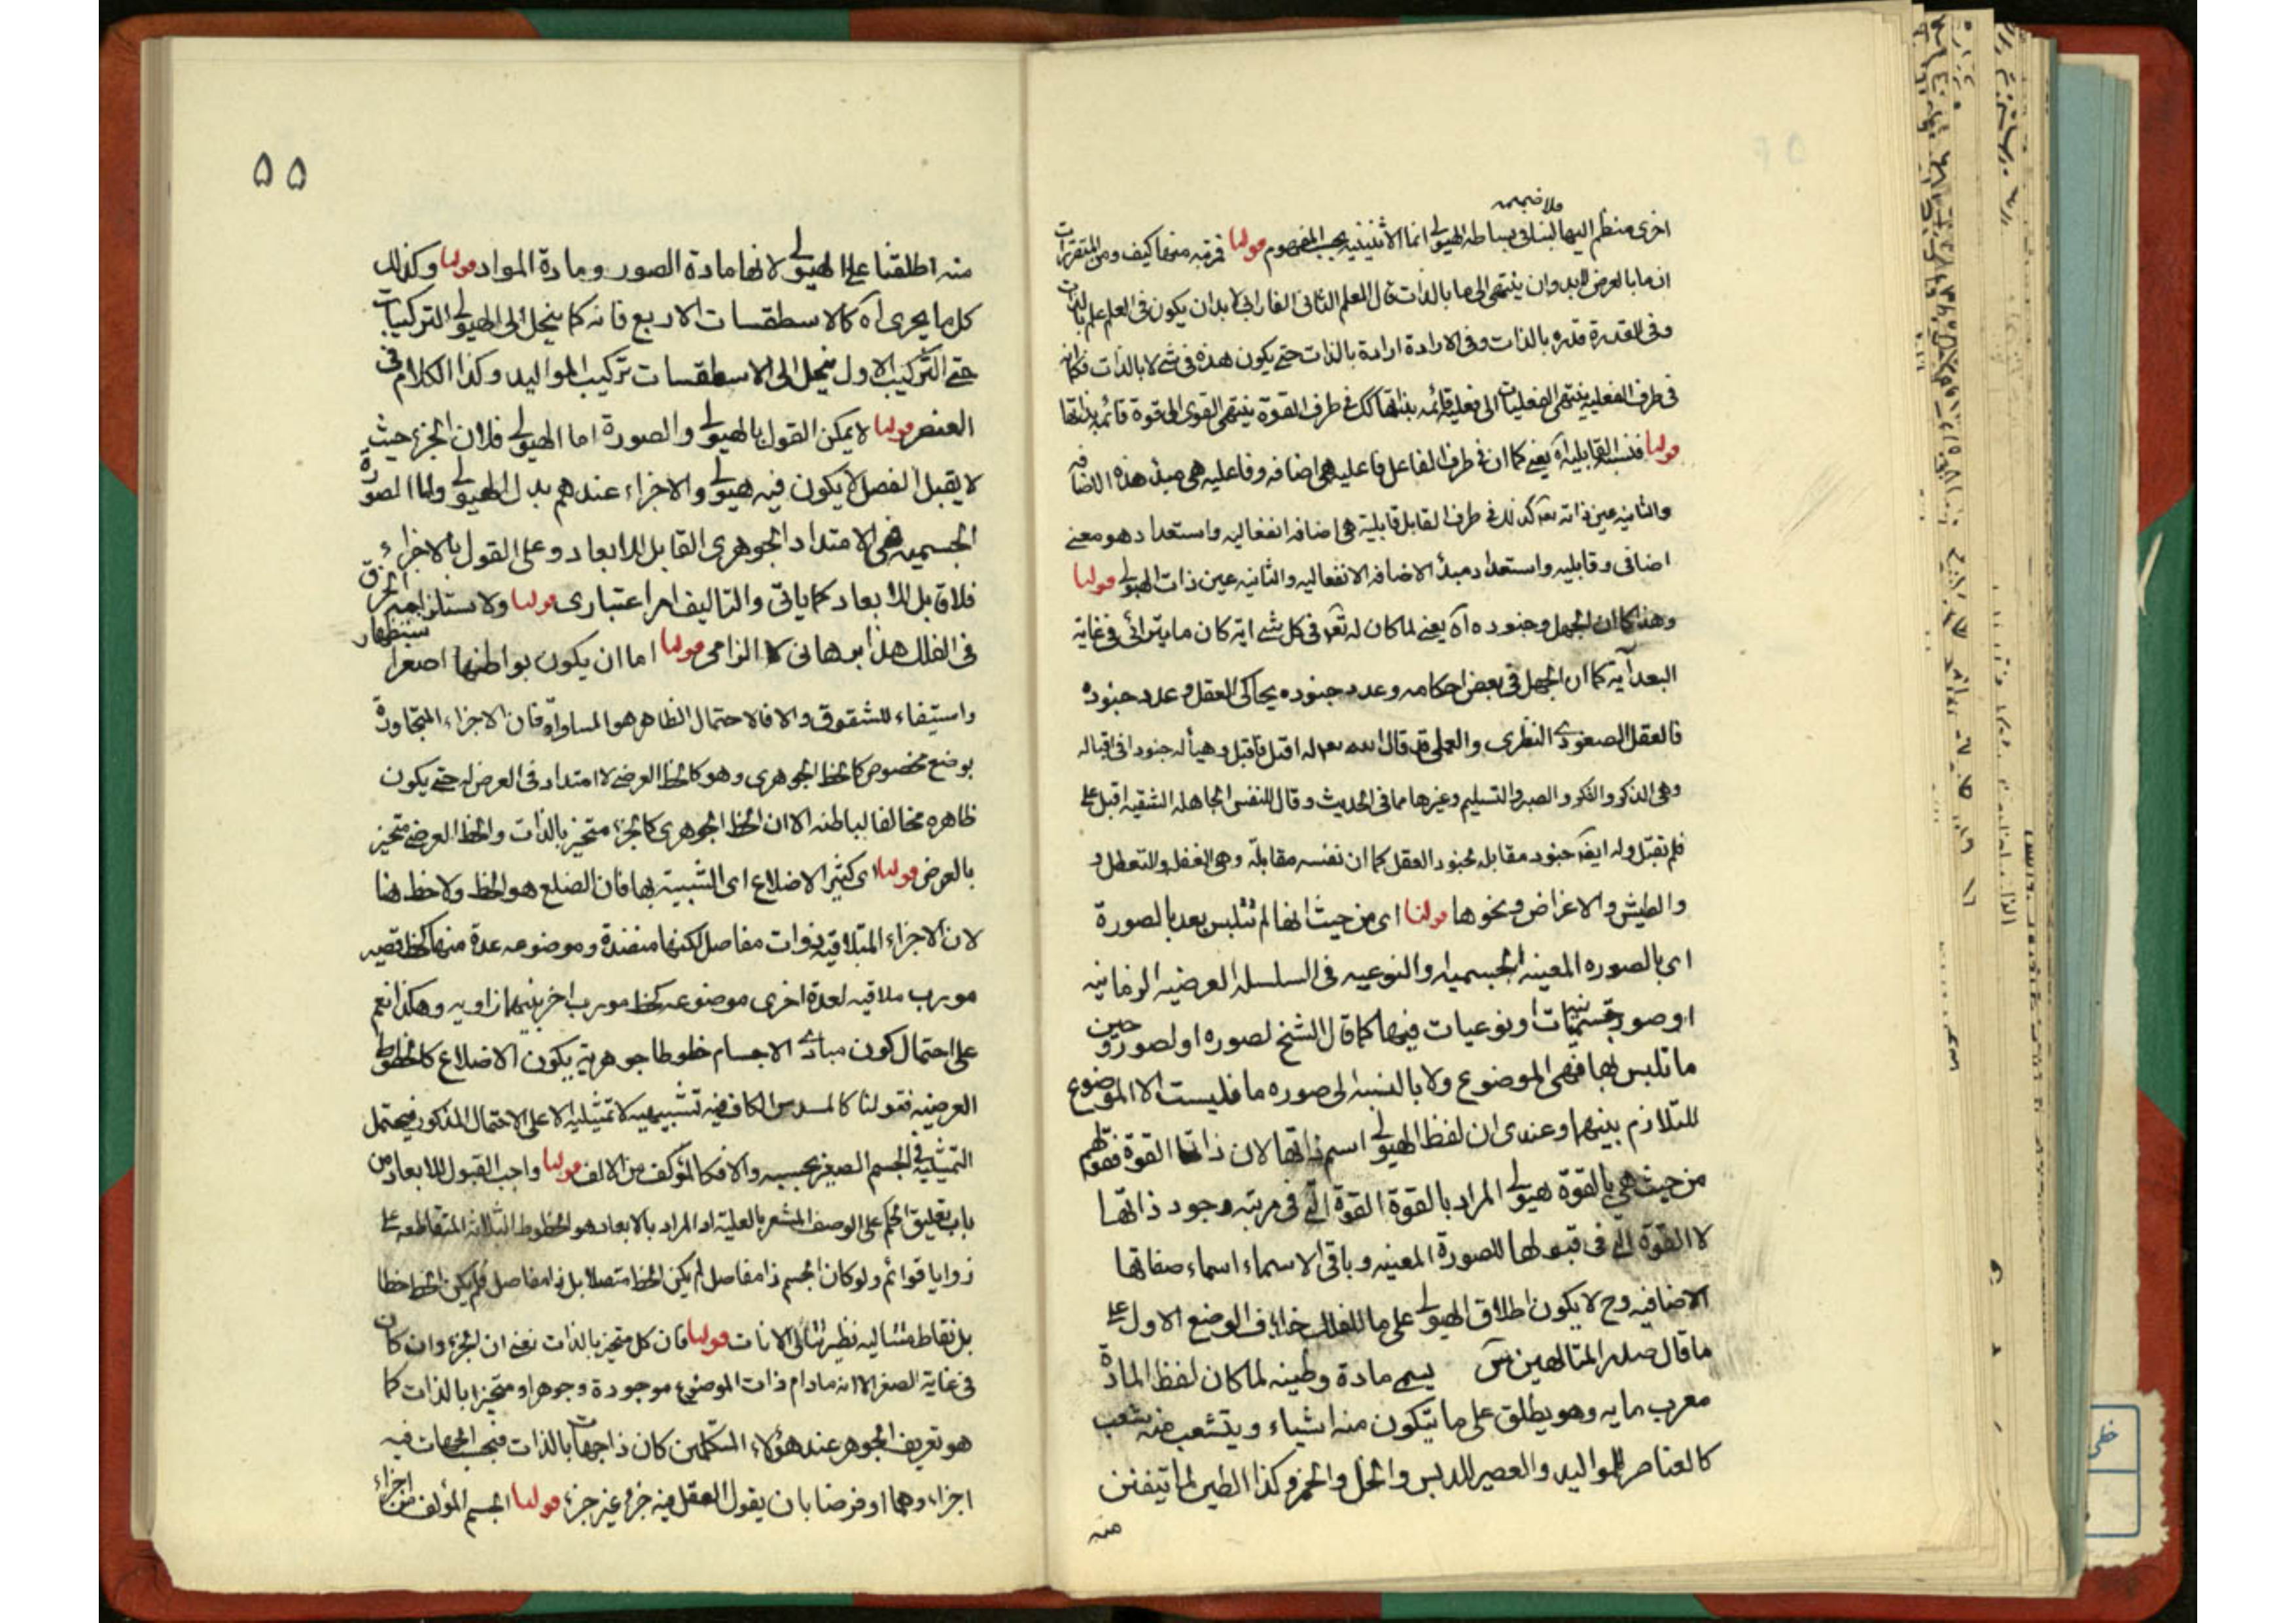 فلا ضميمه
اخرى منظم اليها لينافى بساطه الهيولى انما الاثنينيه بحسب المفهوم قولنا فرتبه منها كيف ومن المتقررات
ان ما بالعرض لابد وان ينتهى الى ما بالذات قال المعلم الثانى الفارابى لابدان يكون فى العلم علم بالذات
وفى القدرة قدره بالذات وفى الارادة ارادة بالذات حتى يكون هذه فى شئ لا بالذات فكما انه
فى طرف الفعليه ينتهى الفعليات الى فعلية قائمه بذاتها كك فى طرف القوة ينتهى القوى الى قوة قائمه بذاتها
قولنا فنسبه القابليه آه يعنى كما ان فى طرف الفاعل فاعليه هى اضافه وفاعليه هى مبدء هذه الاضافه
والثانيه عين ذاته تعه كذلك فى طرف القابل قابلية هى اضافه انفعاليه واستعداد هو معنى
اضافى وقابليه واستعداد مبدء الاضافه الانفعاليه والثانيه عين ذات الهيولى قولنا
وهذا كما ان الجهل وجنوده آه يعنى لما كان له تعه فى كل شئ اية كان ما يترائى فى غاية
البعد آيه كما ان الجهل فى بعض احكامه وعدد جنوده يحاكى العقل وعدد جنوده
فالعقل الصعودى النظرى والعملى قد قال الله تعه له اقبل فاقبل وهيأ له جنودا فى اقباله
وهى الذكر والفكر والصبر والتسليم وغيرها مما فى الحديث وقال للنفس الجاهله الشقيه اقبل على
فلم تقبل وله ايضه جنود مقابله لجنود العقل كما ان نفسه مقابلة وهى الغفله والتعطل و
والطيش والاعراض ونحوها قولنا اى من حيث انها لم تتلبس بعد بالصورة
اى بالصوره المعينه الجسميه والنوعيه فى السلسله العرضيه الزمانيه
او صور جسميات او نوعيات فيها كما قال الشيخ لصوره او لصور وحين
ما تلبس بها فهى الموضوع ولا بالنسبه الى صوره ما فليست الا الموضوع
للتلازم بينهما وعندى ان لفظ الهيولى اسم ذاتها لان ذاتها القوة فقولهم
من حيث هى بالقوة هيولى المراد بالقوة القوة التى فى مرتبه وجود ذاتها
لا القوة التى فى قبولها للصورة المعينه وباقى الاسماء اسماء صفاتها
الاضافيه وح لا يكون اطلاق الهيولى على ما للفلك خلاف الوضع الاول على
ما قال صدر المتالهين س يسمى مادة وطينه لما كان لفظ المادة
معرب مايه وهو يطلق على ما يتكون منه اشياء ويتشعب منه شعب
كالعناصر للمواليد والعصير للدبس والخل والخمر وكذا الطين لما تيفنن
منه
٥٥
منه اطلقنا على الهيولى لانها مادة الصور ومادة المواد قولنا وكذلك
كل ما يجرى آه كالاسطقسات الاربع فانه كما ينحل الى الهيولى التركيبات
حتى التركيب الاول ينحل الى الاسطقسات تركيب المواليد وكذا الكلام فى
العنصر قولنا لا يمكن القول بالهيولى والصورة اما الهيولى فلان الجزء حيث
لا يقبل الفصل لا يكون فيه هيولى والاجزاء عندهم بدل الهيولى واما الصورة
الجسميه فهى الامتداد الجوهرى القابل للابعاد وعلى القول بالاجزاء
فلا قابل للابعاد كما ياتى والتاليف امر اعتبارى قولنا ولاستلزامهم الخرق
فى الفلك هذا برهانى لا الزامى قولنا اما ان يكون بواطنها اصغر استظهار
واستيفاء للشقوق والا فالاحتمال الظاهر هو المساواة فان الاجزاء المتجاورة
بوضع مخصوص كالخط الجوهرى وهو كالخط العرضى لا امتداد فى العرض له حتى يكون
ظاهره مخالفا لباطنه الا ان الخط الجوهرى كالجزء متحيز بالذات والخط العرضى متحيز
بالعرض قولنا اى كثير الاضلاع اى الشبيه بها فان الضلع هو الخط ولا خط هنا
لان الاجزاء المتلاقيه ذوات مفاصل لكنها منضدة وموضوعه عدة منها كخط قصير
مورب ملاقيه لعدة اخرى موضوعه كخط مورب اخر بينهما زاويه وهكذا نعم
على احتمال كون مبادى الاجسام خطوطا جوهرية يكون الاضلاع كالخطوط
العرضيه فقولنا كالمسدس الكاف فيه تشبيهيه لا تمثيليه الا على الاحتمال المذكور فيحتمل
التمثيليه فى الجسم الصغير بحسبه والا فكالمؤلف من الالف قولنا واجب القبول للابعاد من
باب تعليق الحكم على الوصف المشعر بالعليه اذ المراد بالابعاد هو الخطوط الثلاثه المتقاطعه على
زوايا قوائم ولو كان الجسم ذا مفاصل لم يكن الخط متصلا بل ذا مفاصل فلم يكن الخط خطا
بل نقاط متتاليه نظير تتالى الانات قولنا فان كل متحيز بالذات نعنى ان الجزء وان كان
فى غاية الصغر الا انه مادام ذات الموضوع موجودة وجوهرا ومتحيزا بالذات كما
هو تعريف الجوهر عند هؤلاء المتكلمين كان ذا جهات بالذات فبحسب الجهات فيه
اجزاء وهما او فرضا بان يقول العقل فيه جزء غير جزء قولنا الجسم المؤلف من اجزاء